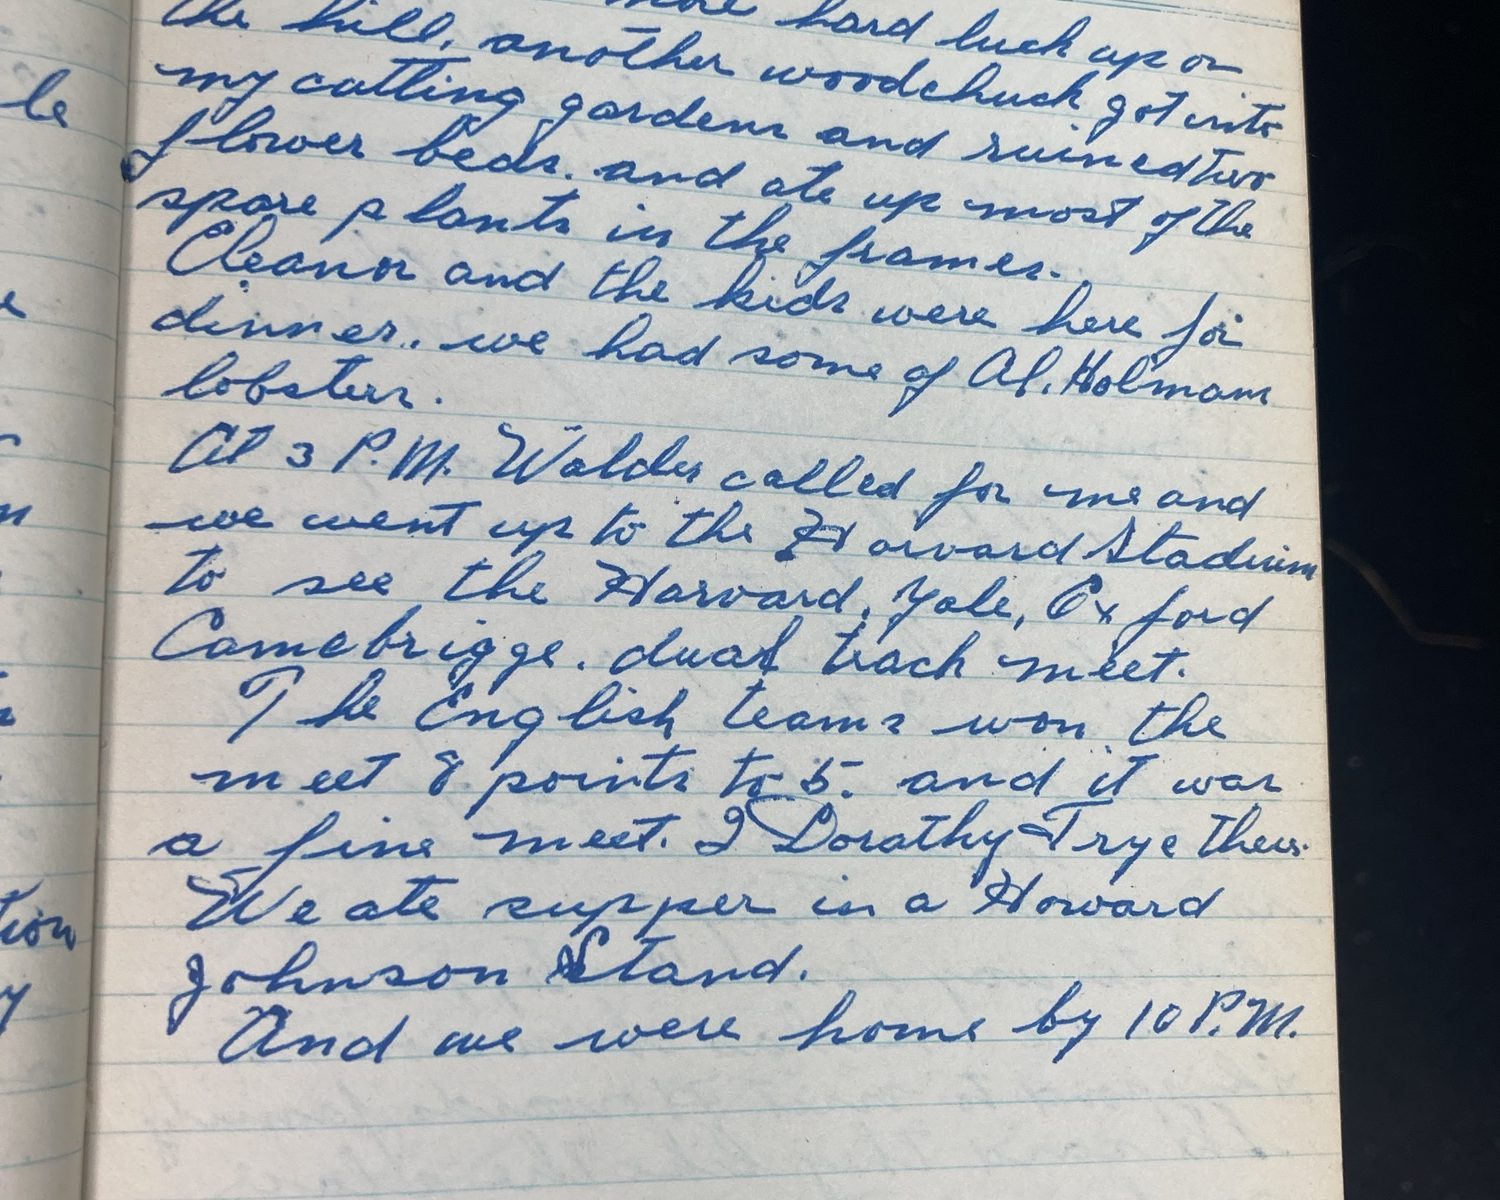 more hard luck up on
the hill. another woodchuck got into
my cutting gardens and ruined two
flower beds. and ate up most of the
spare plants in the frames.
Eleanor and the kids were here for
dinner.. we had some of Al. Holmans
lobsters.
At 3 P.M. called for me and
we went up to the Harvard Stadium
to see the Harvard, Yale, Oxford
Camebrigge. dual track meet.
The English teams won the
meet 8 points to 5. and it was
a fine meet. Dorathy Frye there.
We ate supper in a Howard
Johnson Stand.
And we were home by 10 P.M.
le
e
m
tion
y